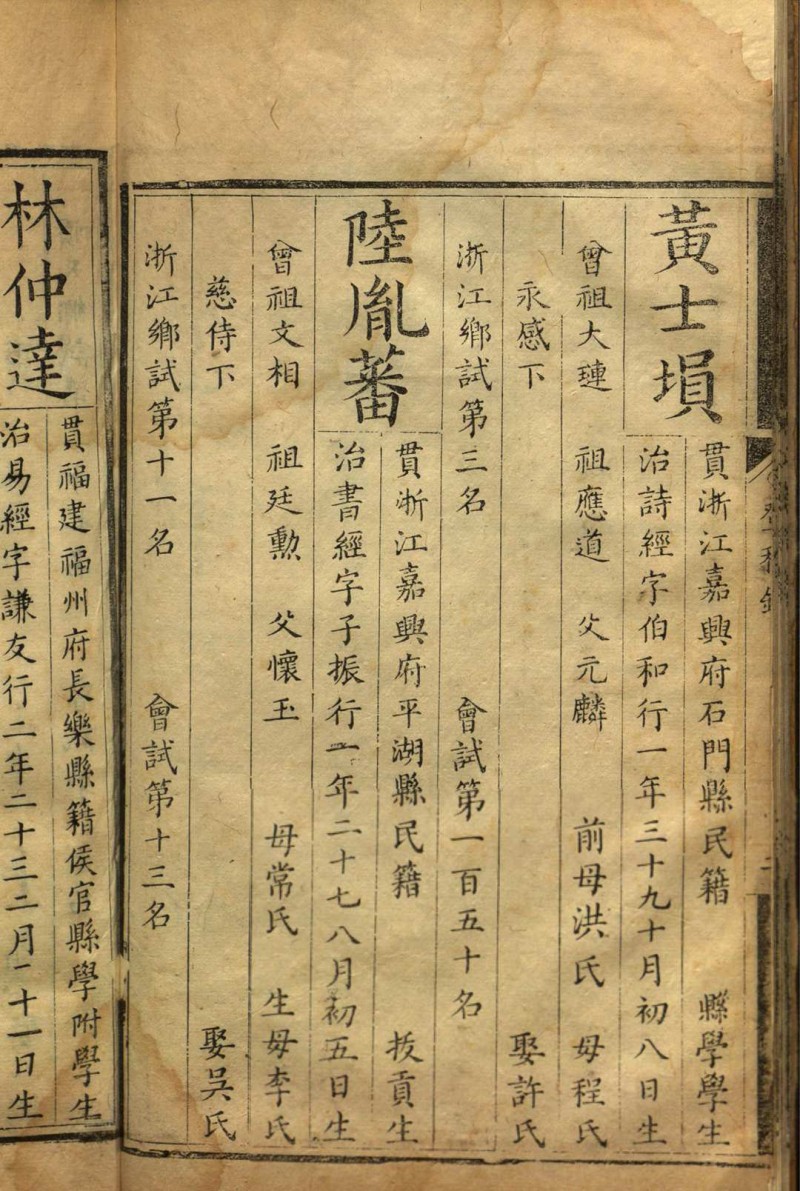 黃士塤
貫浙江嘉興府石門縣民籍 縣學學生
治詩經字伯和行一年三十九十月初八日生
曾祖大璉 祖應道 父元麟 前母洪氏 母程氏
永感下 娶許氏
浙江鄉試第三名 會試第一百五十名
陸胤蕃
貫浙江嘉興府平湖縣民籍 拔貢生
治書經字子振行一年二十七八月初五日生
曾祖文相 祖廷勲 父懷玉 母常氏 生母李氏
慈侍下 娶吳氏
浙江鄉試第十一名 會試第十三名
林仲達
貫福建福州府長樂縣籍侯官縣學附學生
治易經字謙友行二年二十三二月二十一日生